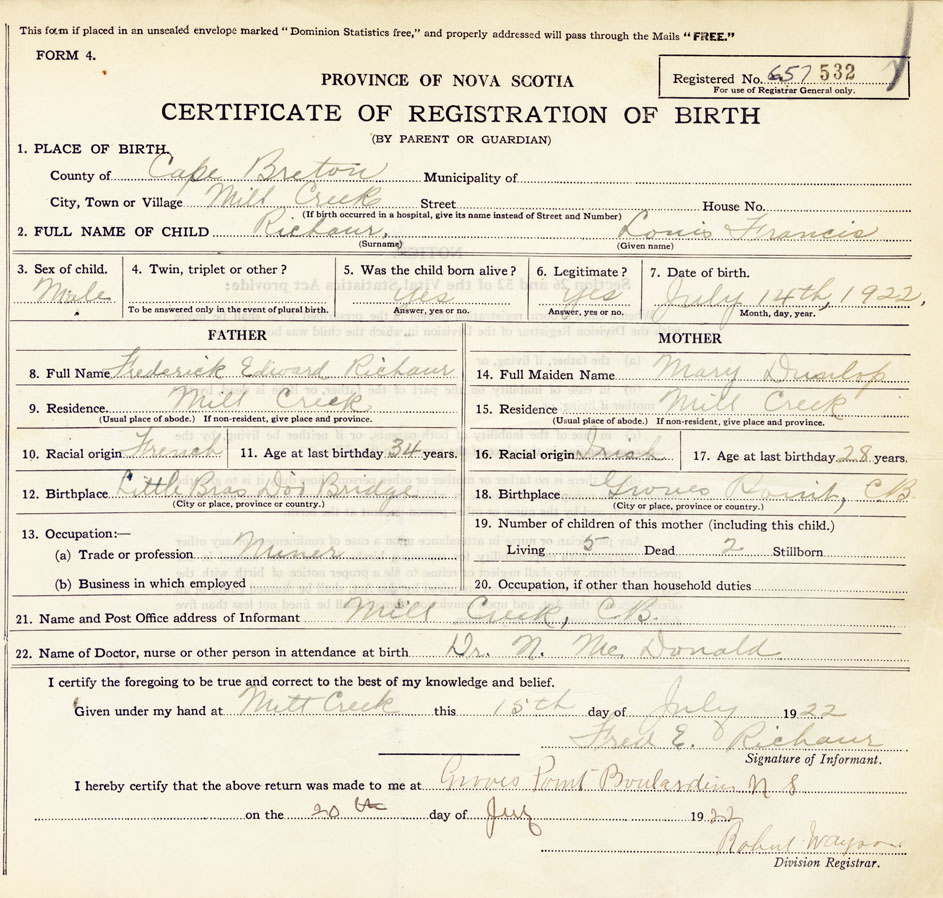 This form if placed in an unsealed envelope marked "Dominion Statistics free," and properly addressed will pass through the Mails "FREE."
FORM 4.
PROVINCE OF NOVA SCOTIA
Registered No. 657 532
For use of Registrar General only.
CERTIFICATE OF REGISTRATION OF BIRTH
(BY PARENT OR GUARDIAN)
1. PLACE OF BIRTH,
County of Cape Breton Municipality of
City, Town or Village Mill Creek Street House No.
(If birth occurred in a hospital, give its name instead of Street and Number)
2. FULL NAME OF CHILD Richaur, Louis Francis
(Surname) (Given name)
3. Sex of child. 4. Twin, triplet or other? 5. Was the child born alive? 6. Legitimate? 7. Date of birth.
Male yes yes July 14th, 1922,
To be answered only in the event of plural birth. Answer, yes or no. Answer, yes or no. Month, day, year.
FATHER MOTHER
8. Full Name Frederick Edward Richaur 14. Full Maiden Name Mary Dunlop
9. Residence. Mill Creek 15. Residence Mill Creek
(Usual place of abode.) If non-resident, give place and province. (Usual place of abode.) If non-resident, give place and province.
10. Racial origin French 11. Age at last birthday 34 years. 16. Racial origin Irish 17. Age at last birthday 28 years.
12. Birthplace Little Bras Dor Bridge 18. Birthplace Groves Point, C.B.
(City or place, province or country.) (City or place, province or country.)
13. Occupation:— 19. Number of children of this mother (including this child.)
(a) Trade or profession Miner Living 5 Dead 2 Stillborn
(b) Business in which employed 20. Occupation, if other than household duties
21. Name and Post Office address of Informant Mill Creek, C.B.
22. Name of Doctor, nurse or other person in attendance at birth Dr. N. Mc Donald
I certify the foregoing to be true and correct to the best of my knowledge and belief.
Given under my hand at Mill Creek this 15th day of July 1922
Fred E. Richaur
Signature of Informant.
I hereby certify that the above return was made to me at Groves Point Boulardin N S
on the 20th day of July 1922
Robert
Division Registrar.